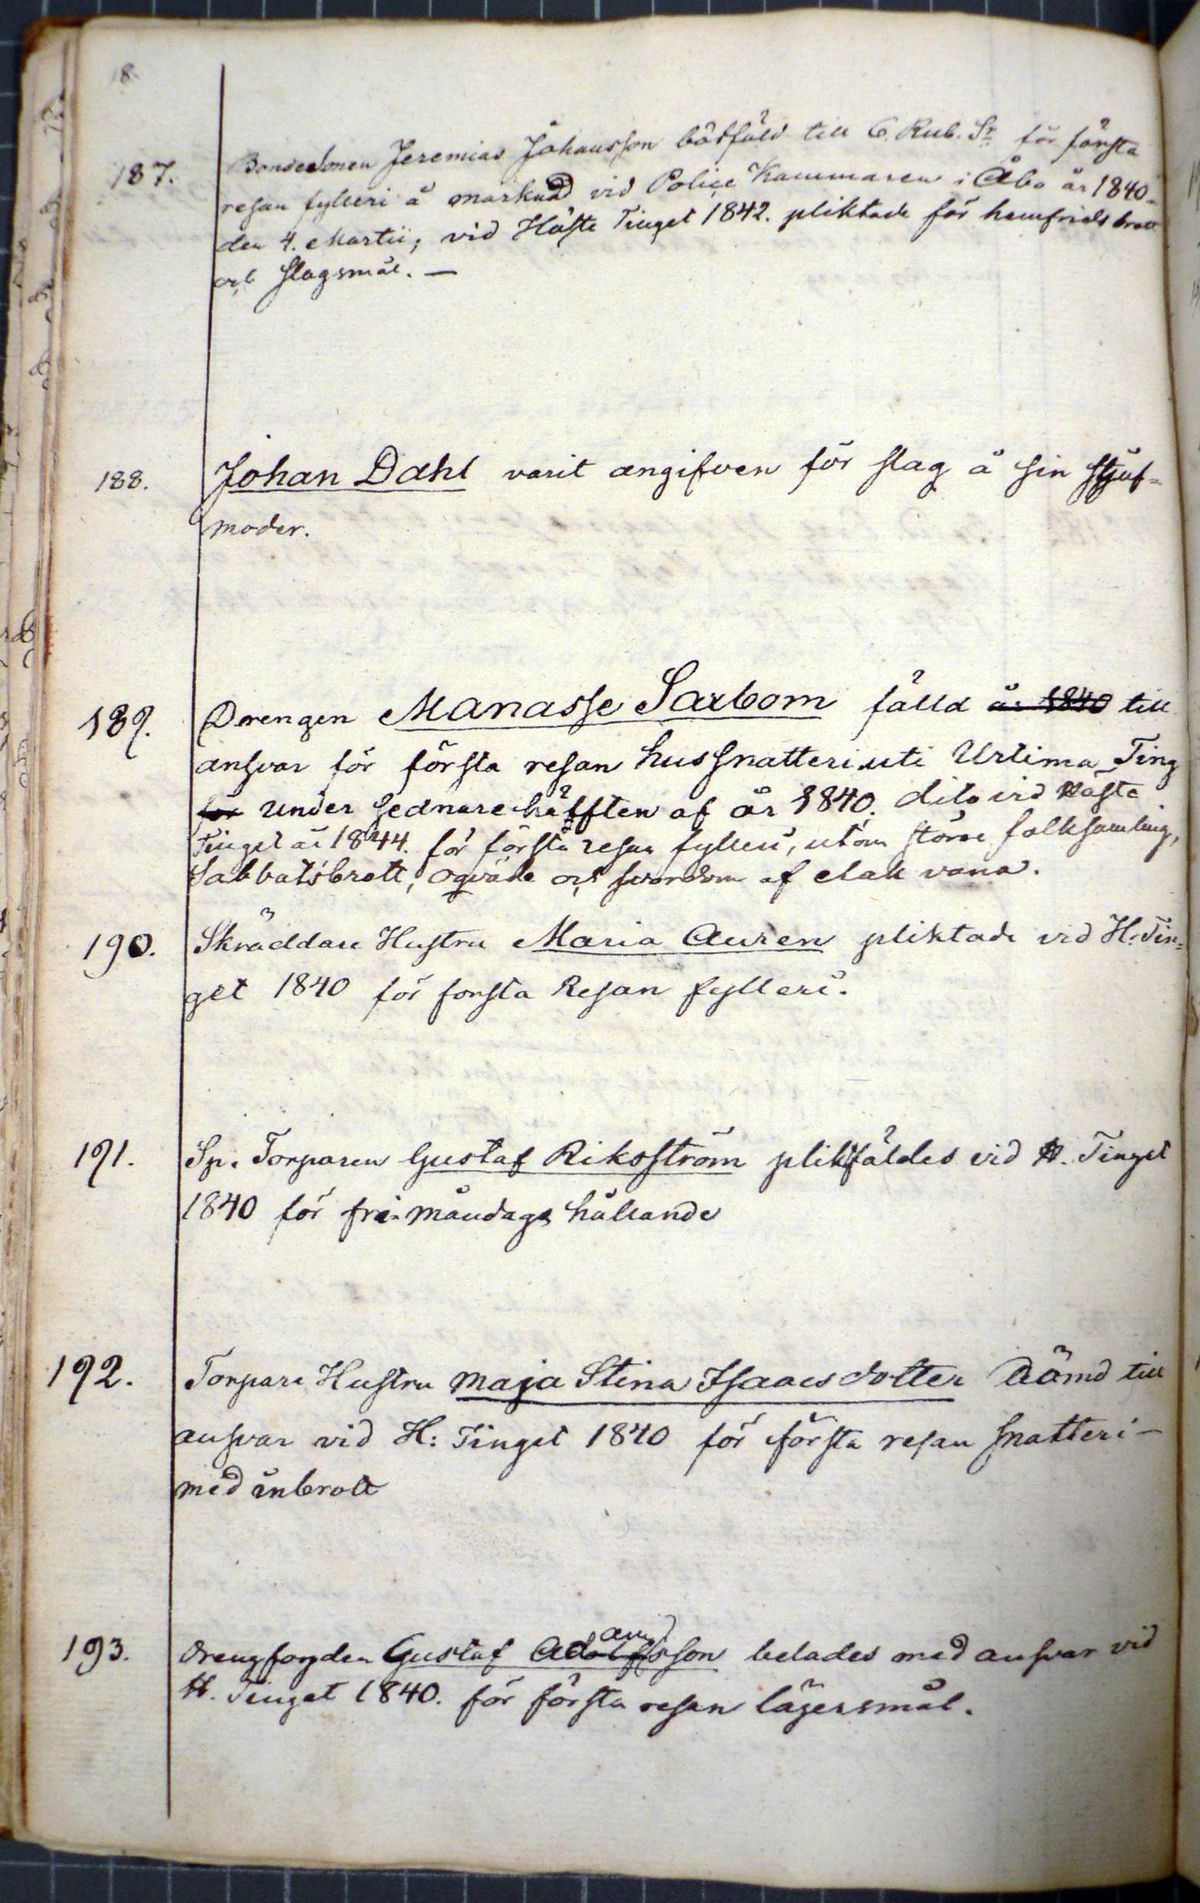 18.
187. Bondesonen Jeremias Johansson bötfäld till 6. Rub. Sr för första
resan fylleri å marknad vid Police Kammaren i Åbo år 1840
den 4. Martii; vid Höste Tinget 1842. pliktade för hemfrids brott
och slagsmål. —
188. Johan Dahl varit angifven för slag å sin stjuf-
moder.
189. Drengen Manasse Saxbom fälld år 1840 till
ansvar för första resan hussnatteri uti Urtima Ting
för under sednare hälfften af år 1840. dito vid Höste
Tinget år 1844. för första resan fylleri, utom större folksamling,
Sabbatsbrott, oqväde och svordom af elak vana.
190. Skräddare Hustru Maria Auren pliktade vid H: Tin-
get 1840 för första Resan fylleri.
191. Sp. Torparen Gustaf Riksström pliktfäldes vid H. Tinget
1840 för fri-måndags hållande
192. Torpare Hustru Maja Stina Isaacs dotter Dömd till
ansvar vid H: Tinget 1840 för första resan snatteri-
med inbrott
193. Drengfogden Gustaf Adolfsson belades med ansvar vid
H. Tinget 1840. för första resan lägersmål.